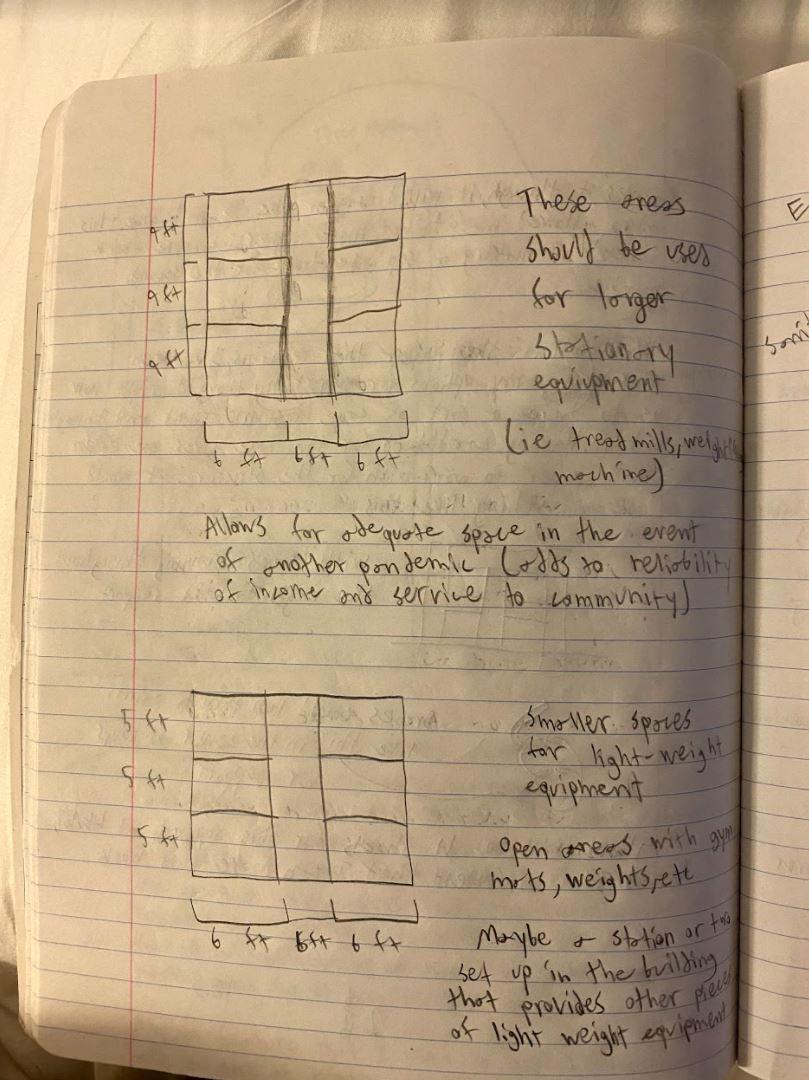 9 ft
9 ft
9 ft
6 ft 6 ft 6 ft
These areas
should be uses
for larger
stationary
equiupment
(ie treadmills, weight
machine)
Allows for adequate space in the event
of another pandemic (adds to reliability
of income and service to community)
5 ft
5 ft
5 ft
6 ft 6ft 6 ft
Smaller spaces
for light-weight
equipment
Open areas with gym
mats, weights, etc
Maybe a station or two
set up in the building
that provides other pieces
of light weight equipment
E